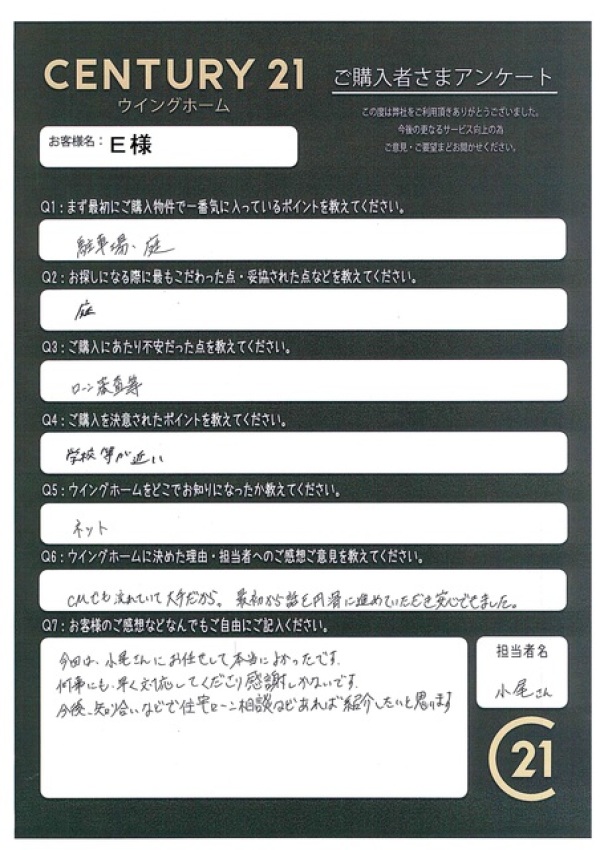 CENTURY 21
ウイングホーム
ご購入者さまアンケート
この度は弊社をご利用頂きありがとうございました。
今後の更なるサービス向上の為
ご意見・ご要望をお聞かせください。
お客様名：E様
Q1：まず最初にご購入物件で一番気に入っているポイントを教えてください。
駐車場、庭
Q2：お探しになる際に最もこだわった点・妥協された点などを教えてください。
庭
Q3：ご購入にあたり不安だった点を教えてください。
ローン審査等
Q4：ご購入を決意されたポイントを教えてください。
学校等が近い
Q5：ウイングホームをどこでお知りになったか教えてください。
ネット
Q6：ウイングホームに決めた理由・担当者へのご感想ご意見を教えてください。
CMでも流れていて大手だから。最初から話を円滑に進めていただき安心できました。
Q7：お客様のご感想などなんでもご自由にご記入ください。
今回は、小尾さんにお任せして本当によかったです。
何事にも、早く対応してくださり感謝しかないです。
今後、知り合いなどで住宅ローン相談などあれば紹介したいと思います
担当者名
小尾さん
C21